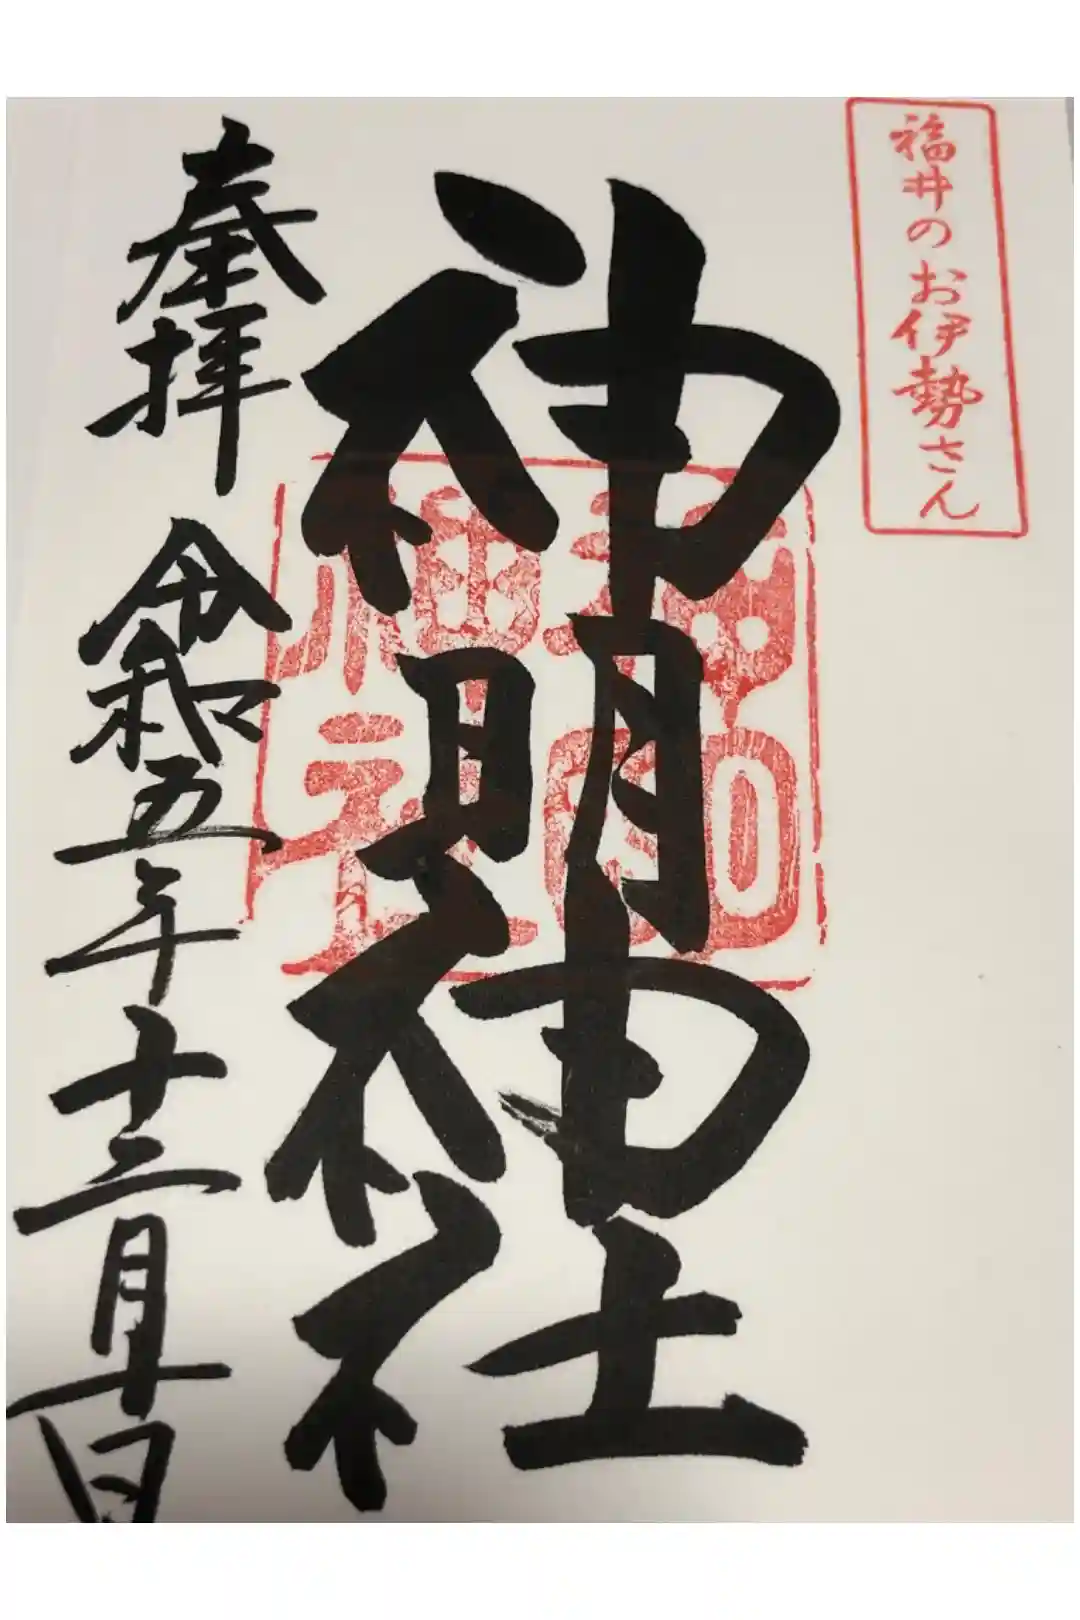 福井のお伊勢さん
神明神社
神明
神社
奉拝 令和五年十二月十日